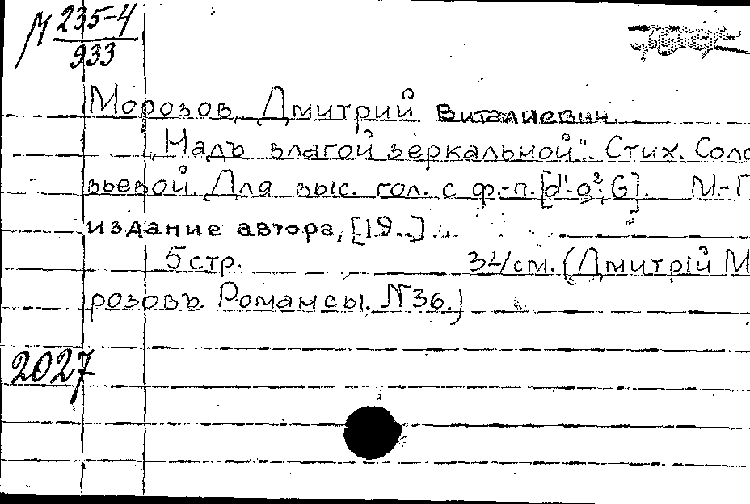 М 235-4
933
Морозов, Дмитрий Виталиевич
„Надъ влагой зеркальной". Стих. Соло
вьевой. Для выс. гол. с ф.-п. [d¹-g², G]. М-Г
издание автора, [19..]
5 стр. 34 см. (Дмитрій М
розовъ. Романсы. №36.)
2027